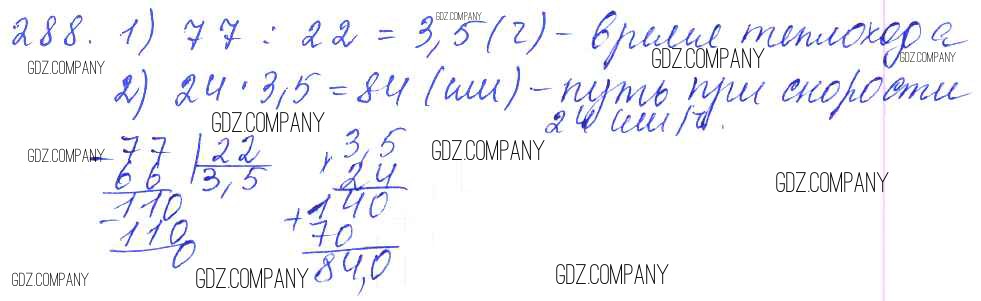 288. 1) 77 : 22 = 3,5 (ч) - время теплохода
2) 24 · 3,5 = 84 (км) - путь при скорости
24 км/ч.
- 77 | 22
66 | 3,5
110
- 110
0
× 3,5
24
+ 140
70
84,0
GDZ.COMPANY
GDZ.COMPANY
GDZ.COMPANY
GDZ.COMPANY
GDZ.COMPANY
GDZ.COMPANY
GDZ.COMPANY
GDZ.COMPANY
GDZ.COMPANY
GDZ.COMPANY
GDZ.COMPANY